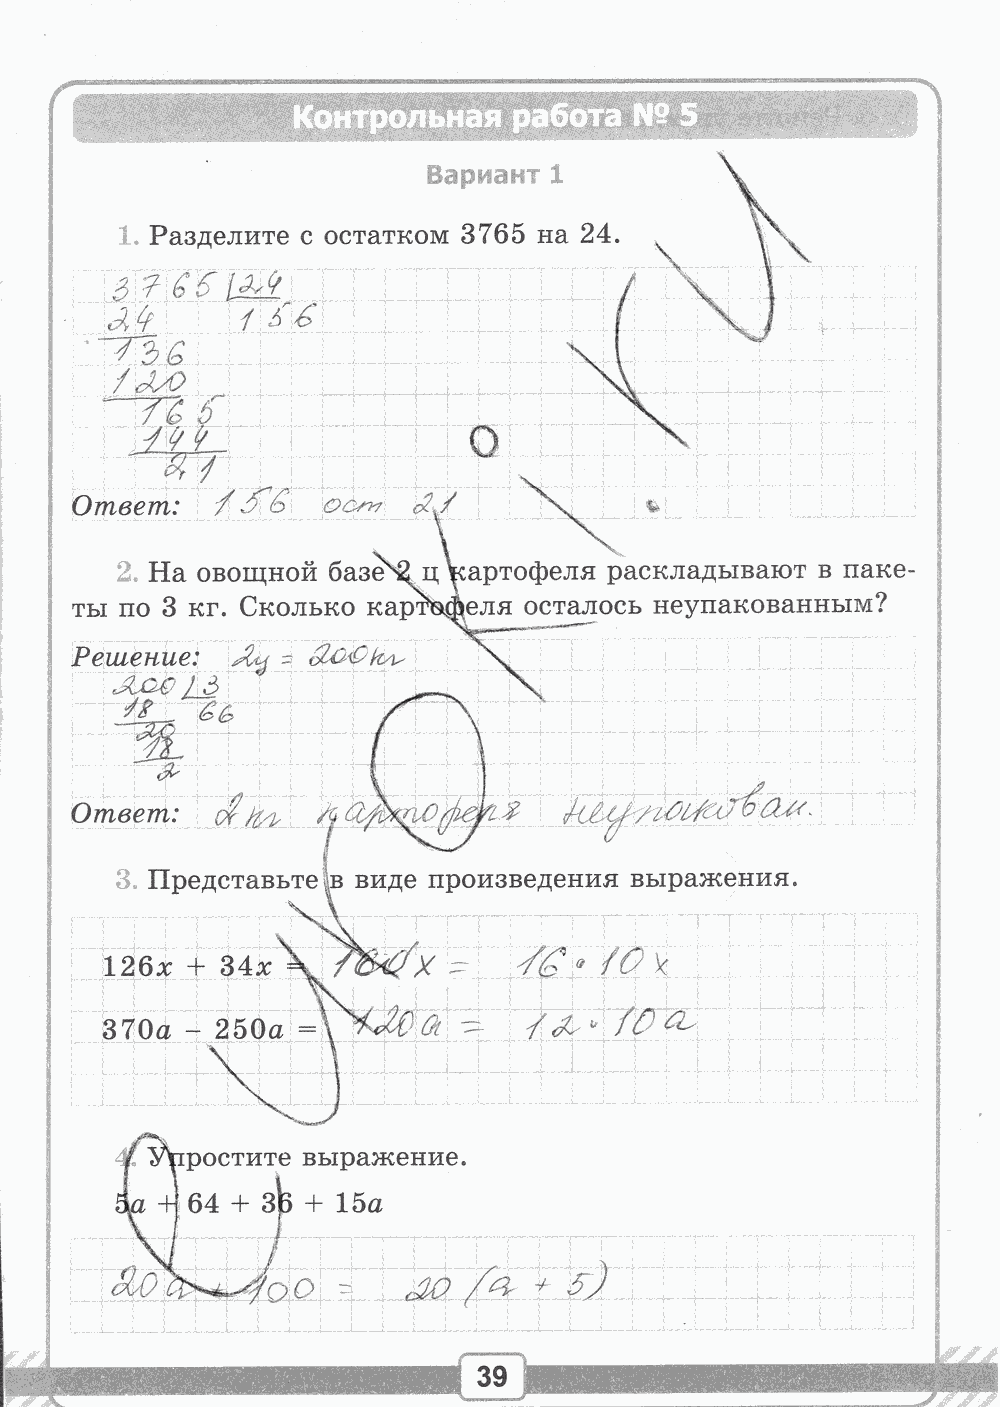 Контрольная работа № 5
Вариант 1
1. Разделите с остатком 3765 на 24.
3765 24
24 156
136
120
165
144
21
Ответ: 156 ост 21
2. На овощной базе 2 ц картофеля раскладывают в паке-
ты по 3 кг. Сколько картофеля осталось неупакованным?
Решение: 2ц = 200кг
200 3
18 66
20
18
2
Ответ: 2кг картофеля неупакован.
3. Представьте в виде произведения выражения.
126x + 34x = 160x = 16 · 10x
370a – 250a = 120a = 12 · 10a
4. Упростите выражение.
5a + 64 + 36 + 15a
20a + 100 = 20 (a + 5)
39